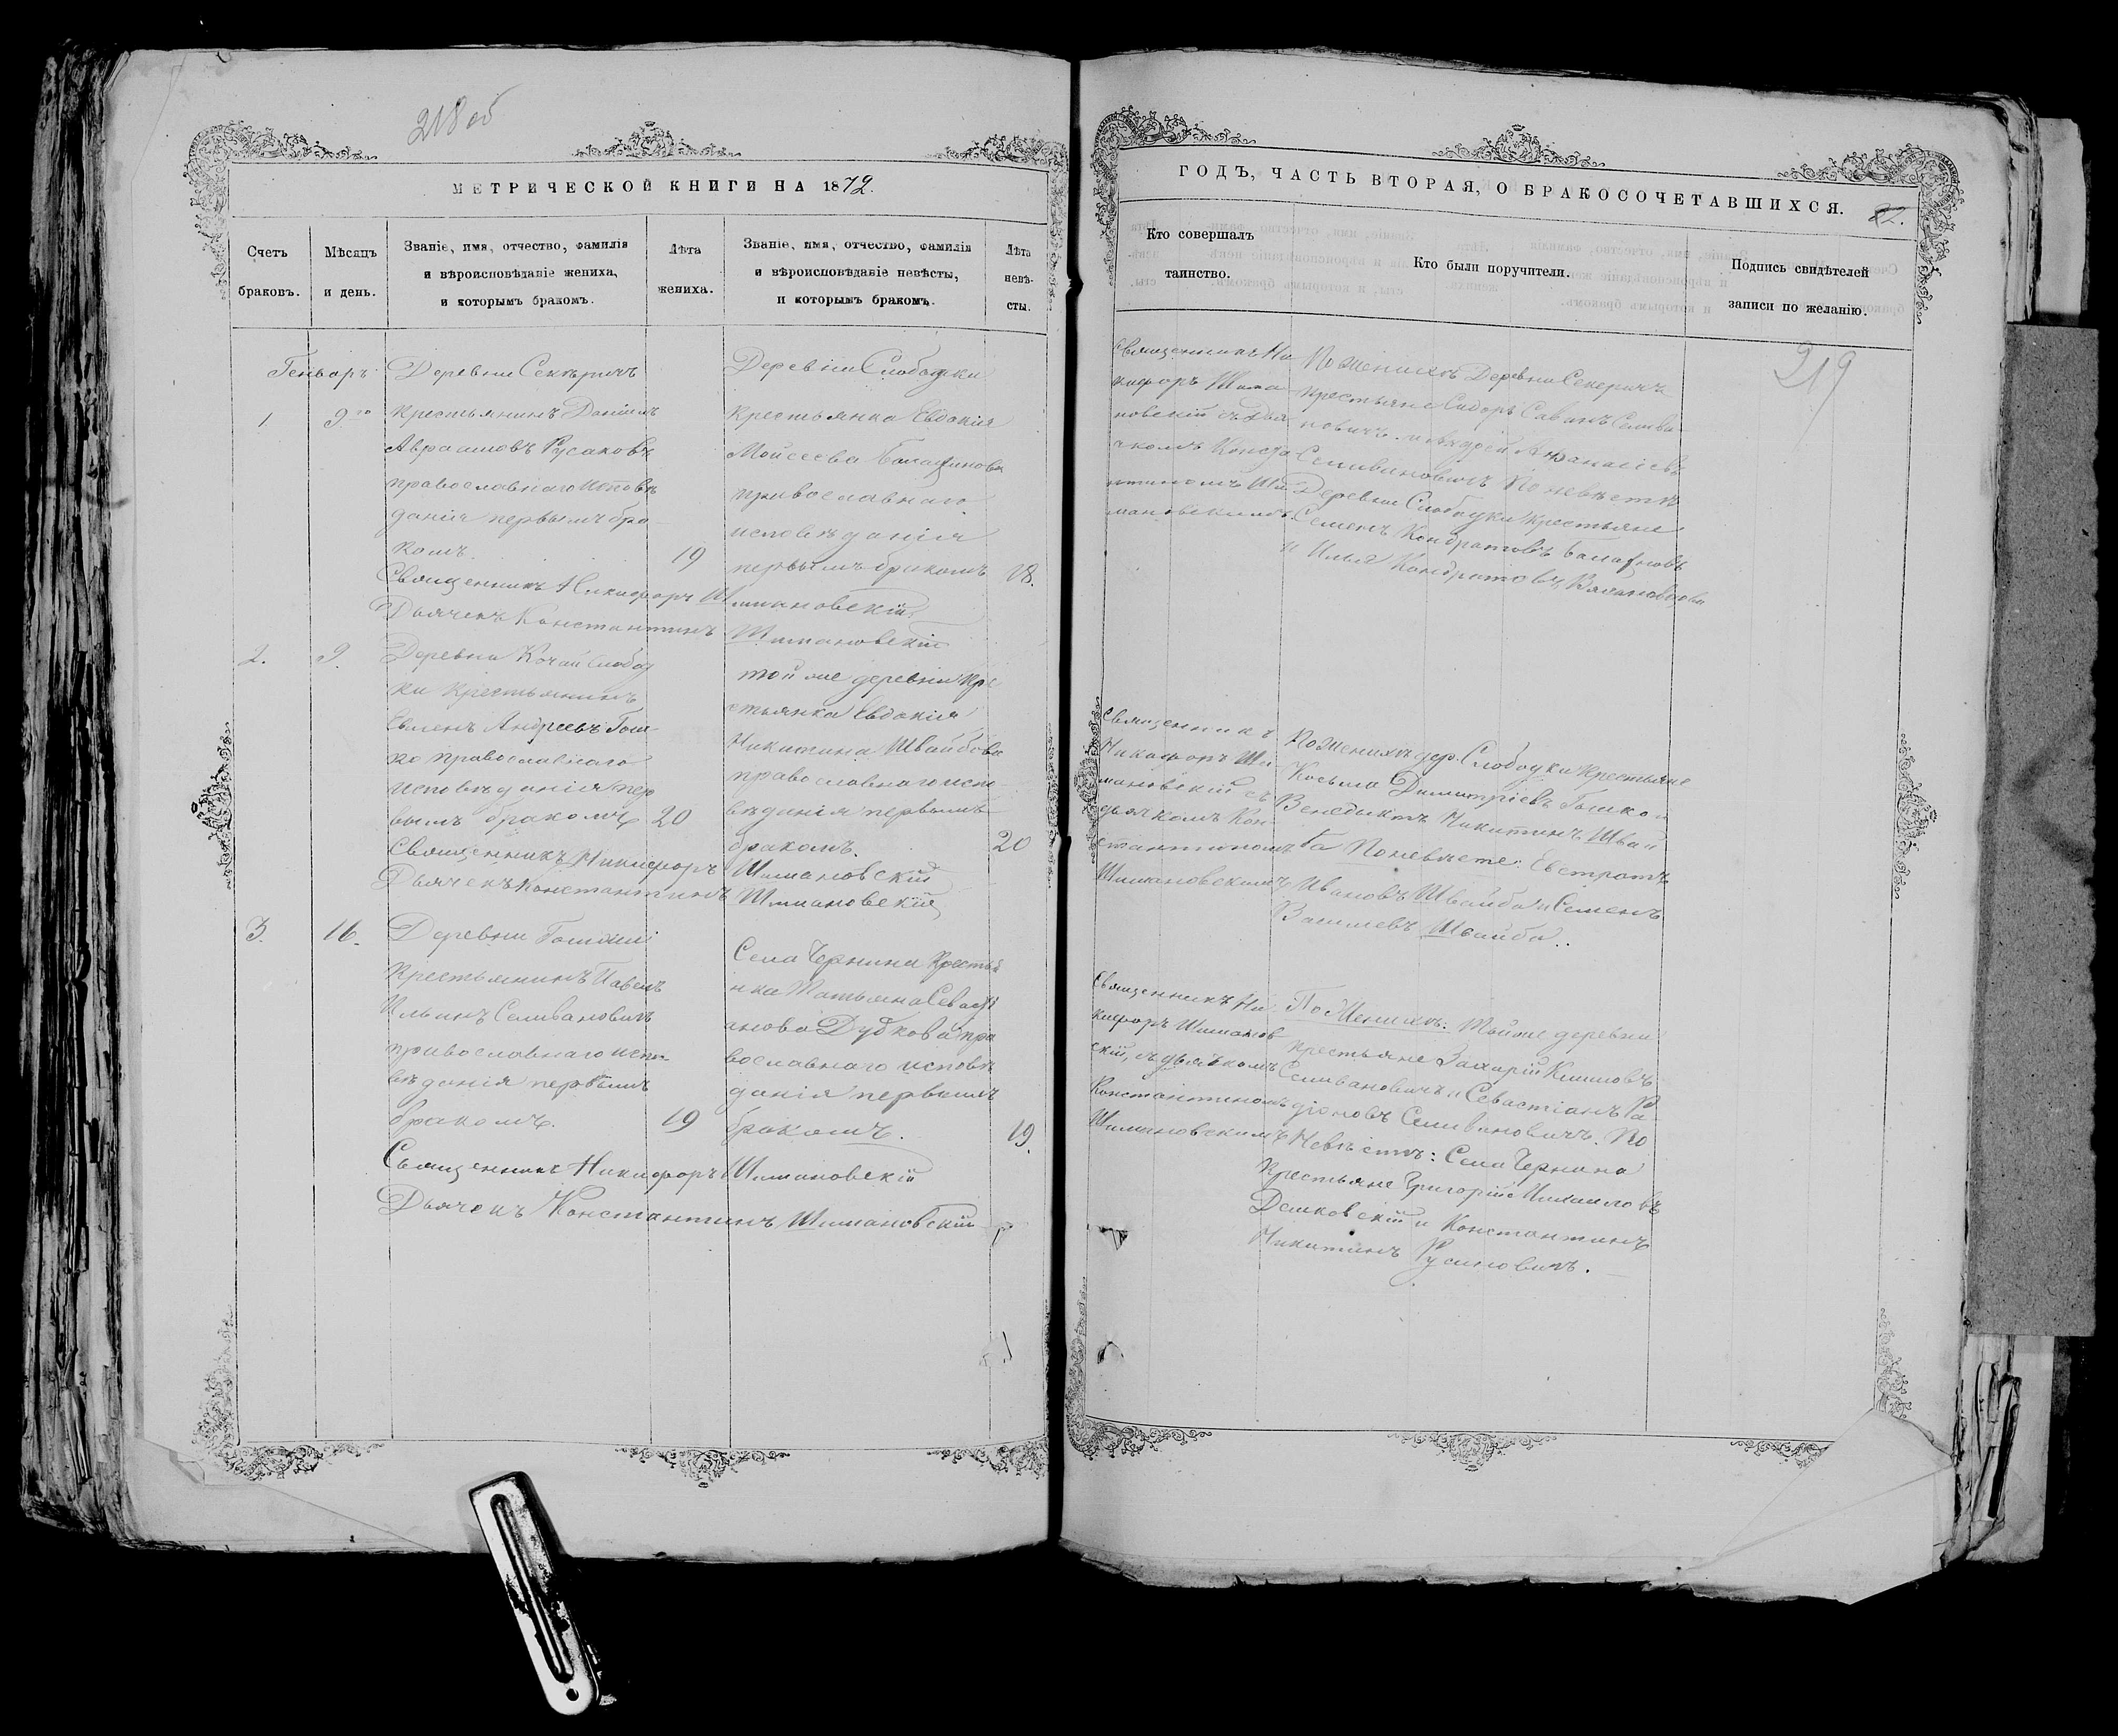 218 об
МЕТРИЧЕСКОЙ КНИГИ НА 1872.
Счетъ браковъ.
Мѣсяцъ и день.
Званіе, имя, отчество, фамилія
и вѣроисповѣданіе жениха,
и которымъ бракомъ.
Лѣта жениха.
Званіе, имя, отчество, фамилія
и вѣроисповѣданіе невѣсты,
и которымъ бракомъ.
Лѣта невѣ-
сты.
Геньварь
1
9го
Деревни Секѣричъ
крестьянинъ Даніилъ
Авраамовъ Русаковъ
православнаго исповѣ
данія первымъ бра-
комъ.
19
Деревни Слободки
крестьянка Евдокія
Моисеева
православнаго
исповѣданія
первымъ бракомъ
18.
Священникъ Никифоръ Шимановскій
Дьячекъ Константинъ Шимановскій
2.
9.
Деревни Кочай Слобод
ки крестьянинъ
Семенъ Андреевъ Гош-
ко православнаго
исповѣданія пер
вымъ бракомъ
20
той же деревни кре
стьянка Евдокія
Никитина Швайбова
православнаго испо
вѣданія первымъ
бракомъ.
20
Священникъ Никифоръ Шимановскій
Дьячекъ Константинъ Шимановскій
3.
16.
Деревни
Крестьянинъ Павелъ
Ильинъ Селивановичъ
православнаго испо-
вѣданія первымъ
бракомъ.
19
Села Чернина крестья
нка Татьяна Севасті
анова Дубкова пра
вославнаго исповѣ
данія первымъ
бракомъ.
19.
Священникъ Никифоръ Шимановскій
Дьячекъ Константинъ Шимановскій
ГОДЪ, ЧАСТЬ ВТОРАЯ, О БРАКОСОЧЕТАВШИХСЯ.
219
Кто совершалъ
таинство.
Кто были поручители.
Подпись свидѣтелей
записи по желанію.
Священникъ Ни
кифоръ Шима
новскій съ дья
чкомъ Конста
нтиномъ Ши
мановскимъ.
По женихѣ Деревни Секеричъ
крестьяне Сидоръ Савинъ Селива
новичъ и Андрей Афанасіевъ
Селивановичъ По невѣстѣ
Деревни Слободки крестьяне
Семенъ Кондратовъ
и Илья Кондратовъ
Священникъ
Никифоръ Ши
мановскій съ
дьячкомъ Кон-
стантиномъ
Шимановскимъ
По женихѣ дер. Слободки крестьяне
Косьма Димитріевъ Гошко и
Венедыктъ Никитинъ Швай
ба По невѣсте: Евстратъ
Ивановъ Швайба и Семенъ
Василевъ Швайба..
Священникъ Ни
кифоръ Шиманов
скій, съ дьячкомъ
Константиномъ
Шимановскимъ
По Женихѣ: Той же деревни
крестьяне Захарій Климовъ
Селивановичъ и Севастіанъ Ра-
діоновъ Селивановичъ. По
Невѣстѣ: Села Чернина
крестьяне Григорій Михаиловъ
Демковскій и Константинъ
Никитинъ Русиновичъ.